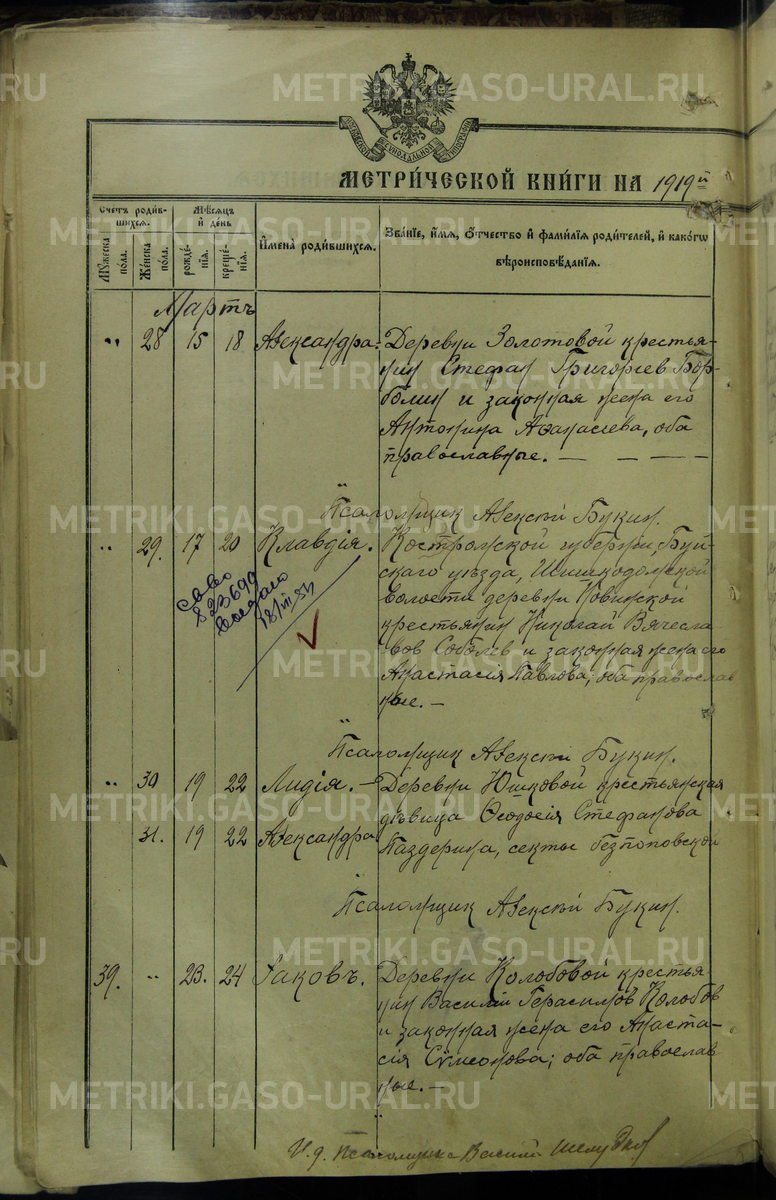 МОСКОВСКОЙ СѴНОДАЛЬНОЙ ТИПОГРАФІИ
МЕТРИ́ЧЕСКОЙ КНИ́ГИ НА 1919й
Счетъ роди́в-
шихся.
Мꙋ́жеска
по́ла.
Же́нска
по́ла.
Мѣ́сяцъ
и҆ де́нь
рожде́-
нїя.
креще́-
нїя.
И҆мена̀ роди́вшихся.
Зва́нїе, и҆́мя, Ѻ҆́тчество и҆ фамѝлїя роди́телей, и҆ како́гѡ
вѣроисповѣ́данїя.
Мартъ
" 28 15 18 Александра. Деревни Золотовой крестья-
нин Стефан Григориев Бор-
болин и законная жена его
Антонина Афанасиева, оба
православные. — — — —
Псаломщик Алексѣй Букин.
" 29. 17 20 Клавдія. Костромской губернии, Буй-
скаго уезда, Шишкодомской
волости деревни Новинской
крестьянин Николай Вячесла-
вов Соболев и законная жена его
Анастасія Павлова; оба православ
ные. —
св-во
823699
выдано
18/III 54
Псаломщик Алексѣй Букин.
" 30 19 22 Лидія. — Деревни Юшковой крестьянская
дѣвица Ѳеодосія Стефанова
31. 19 22 Александра Паздерина, секты безпоповской
Псаломщик Алексѣй Букин.
39. " 23. 24 Іаковъ. Деревни Колобовой крестья
нин Василій Герасимов Колобов
и законная жена его Анаста-
сія Сѵмеонова; оба православ
ные. —
И. д. псаломщика Василий
METRIKI.GASO-URAL.RU